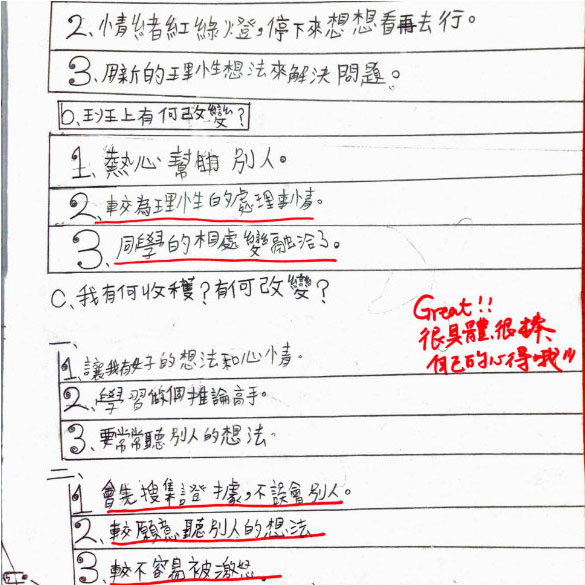 2、情緒紅綠燈,停下來想想看再去行。
3、用新的理性想法來解決問題。
b、班上有何改變?
1、熱心幫助別人。
2、較為理性的處理事情。
3、同學的相處變融洽了。
C、我有何收穫?有何改變?
Great!!
很具體、很棒、
自己的心得哦!!
一、
1、讓我有好子的想法和心情。
2、學習做個推論高手。
3、要常常聽別人的想法。
二、
1、會先搜集證據,不誤會別人。
2、較願意聽別人的想法
3、較不容易被激怒。